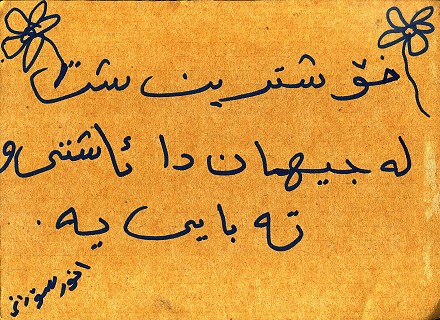 خۆشترین شت
لە جیهان دا ئاشتی و
تە بایی یە.
انور